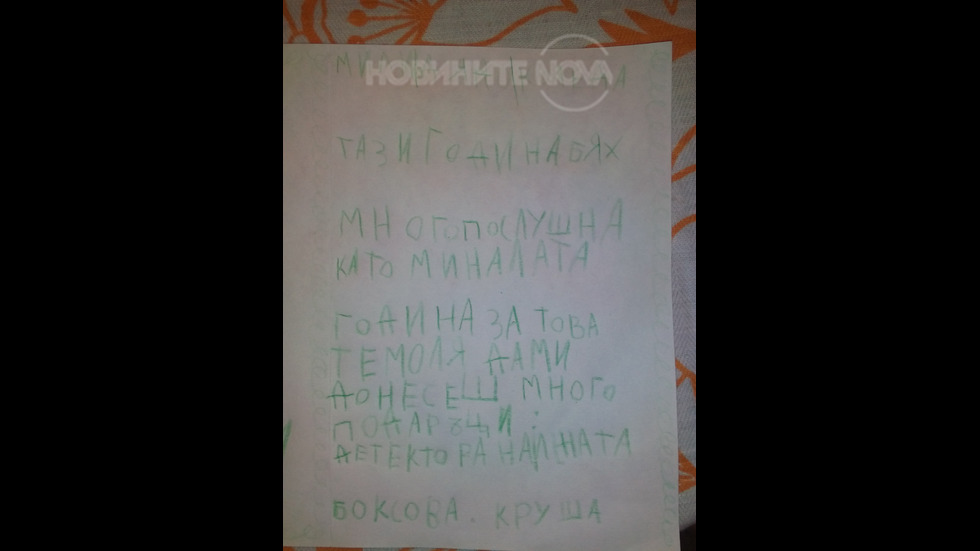 НОВИНИТЕ NOVA
ТАЗИ ГОДИНА БЯХ
МНОГО ПОСЛУШНА
КАТО МИНАЛАТА
ГОДИНА ЗА ТОВА
ТЕ МОЛЯ ДАМИ
ДОНЕСЕШ МНОГО
ПОДАРЪЦИ:
ДЕТЕКТОРА НА ЛЖАТА
БОКСОВА. КРУША